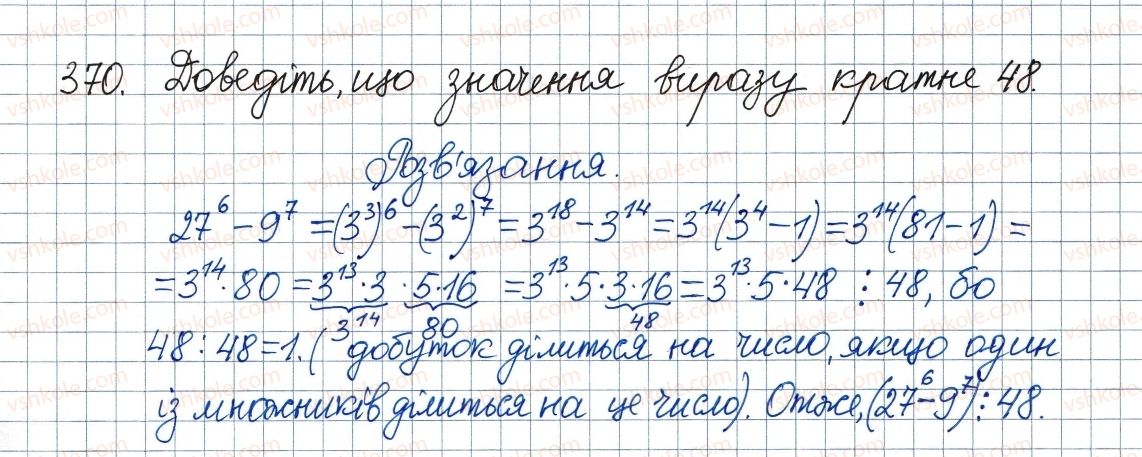 370. Доведіть, що значення виразу кратне 48.
Розв'язання.
27⁶ − 9⁷ = (3³)⁶ − (3²)⁷ = 3¹⁸ − 3¹⁴ = 3¹⁴(3⁴ − 1) = 3¹⁴(81 − 1) =
= 3¹⁴ · 80 = 3¹³ · 3 · 5 · 16 = 3¹³ · 5 · 3 · 16 = 3¹³ · 5 · 48 ⋮ 48, бо
3¹⁴ 80 48
48 : 48 = 1. (добуток ділиться на число, якщо один
із множників ділиться на це число). Отже, (27⁶ − 9⁷) ⋮ 48.